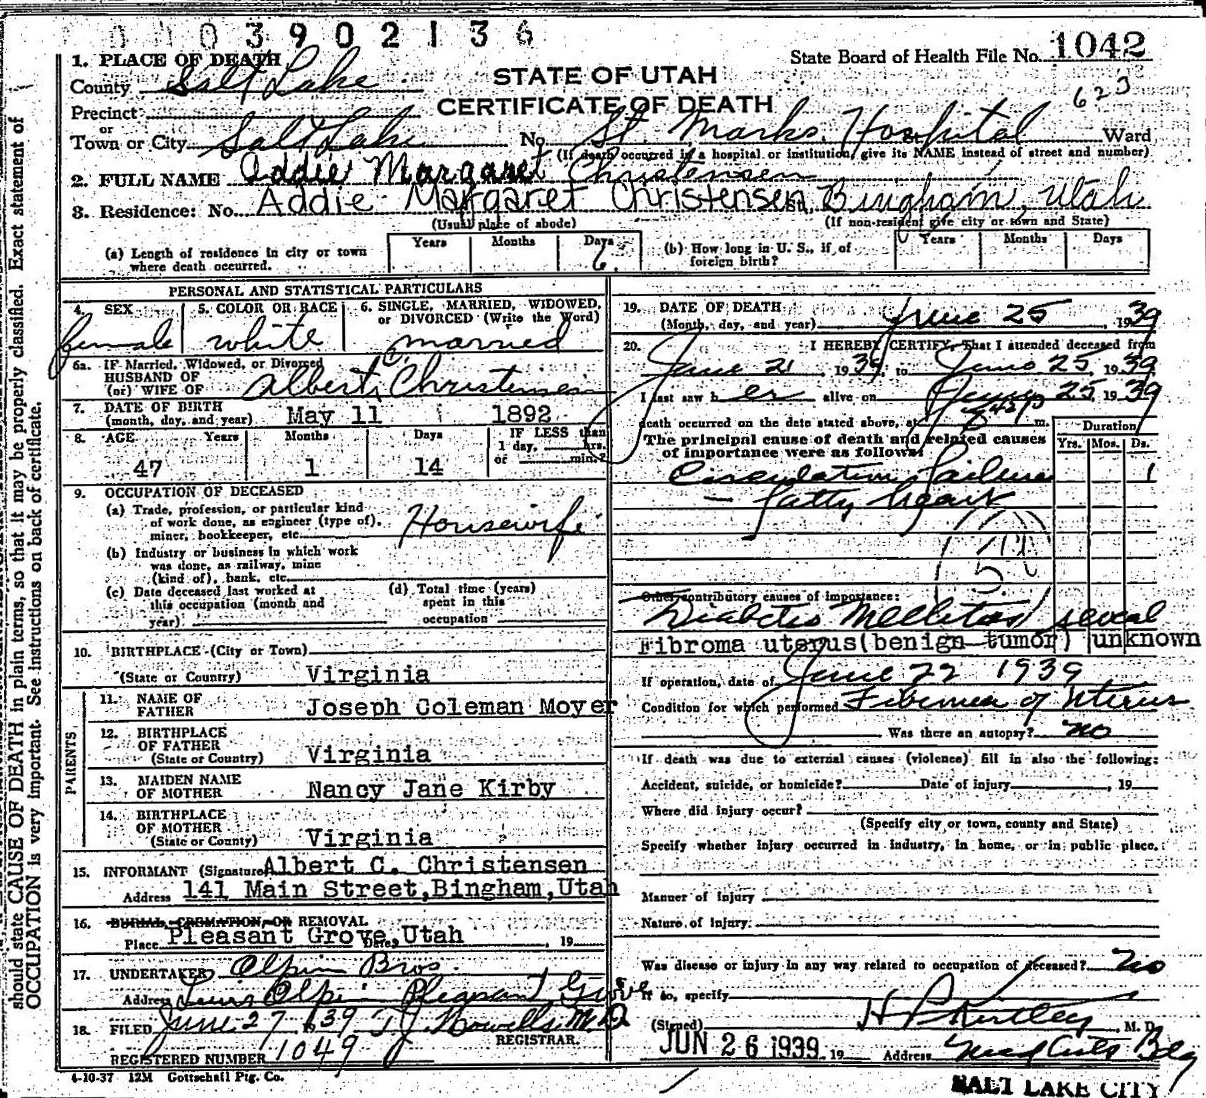 0003902136
State Board of Health File No. 1042
1. PLACE OF DEATH
County Salt Lake
STATE OF UTAH
CERTIFICATE OF DEATH
623
Precinct
or
Town or City Salt Lake No. St Marks Hospital Ward
(If death occurred in a hospital or institution, give its NAME instead of street and number)
2. FULL NAME Addie Margaret Christensen
3. Residence: No. Addie Margaret Christensen St. Bingham, Utah
(Usual place of abode) (If non-resident give city or town and State)
(a) Length of residence in city or town where death occurred. Years Months Days 6
(b) How long in U. S., if of foreign birth? Years Months Days
PERSONAL AND STATISTICAL PARTICULARS
4. SEX female
5. COLOR OR RACE white
6. SINGLE, MARRIED, WIDOWED, or DIVORCED (Write the Word) married
6a. IF Married, Widowed, or Divorced
HUSBAND OF
(or) WIFE OF Albert Christensen
7. DATE OF BIRTH
(month, day, and year) May 11 1892
8. AGE Years Months Days IF LESS than
1 day, hrs.
or min.?
47 1 14
9. OCCUPATION OF DECEASED
(a) Trade, profession, or particular kind
of work done, as engineer (type of),
miner, bookkeeper, etc. Housewife
(b) Industry or business in which work
was done, as railway, mine
(kind of), bank, etc.
(c) Date deceased last worked at
this occupation (month and
year)
(d) Total time (years)
spent in this
occupation
10. BIRTHPLACE (City or Town)
(State or Country) Virginia
PARENTS
11. NAME OF
FATHER Joseph Coleman Moyer
12. BIRTHPLACE
OF FATHER
(State or Country) Virginia
13. MAIDEN NAME
OF MOTHER Nancy Jane Kirby
14. BIRTHPLACE
OF MOTHER
(State or County) Virginia
15. INFORMANT (Signature) Albert C. Christensen
Address 141 Main Street, Bingham, Utah
16. BURIAL, CREMATION, OR REMOVAL
Place Pleasant Grove, Utah Date , 19
17. UNDERTAKER Olpin Bros.
Address Olpin Pleasant Grove
18. FILED June 27 1939 T J Howells M.D.
REGISTRAR.
REGISTERED NUMBER 1049
4-10-37 12M Gottschall Ptg. Co.
19. DATE OF DEATH
(Month, day, and year) June 25, 1939
20. I HEREBY CERTIFY, That I attended deceased from
June 21 1939, to June 25, 1939
I last saw h er alive on June 25, 1939
death occurred on the date stated above, at m.
The principal cause of death and related causes
of importance were as follows:
Duration
Yrs. Mos. Ds.
Circulation Failure 1
- fatty heart
Other contributory causes of importance:
Diabetes Mellitus several
Fibroma uterus(benign tumor) unknown
If operation, date of June 22 1939
Condition for which performed Fibroma of Uterus
Was there an autopsy? no
If death was due to external causes (violence) fill in also the following:
Accident, suicide, or homicide? Date of injury , 19
Where did injury occur?
(Specify city or town, county and State)
Specify whether injury occurred in industry, in home, or in public place.
Manner of injury
Nature of injury
Was disease or injury in any way related to occupation of deceased? no
If so, specify
(Signed) H P Kirtley, M. D.
JUN 26 1939 19 Address Med Arts Bldg
SALT LAKE CITY
should state CAUSE OF DEATH in plain terms, so that it may be properly classified. Exact statement of
OCCUPATION is very important. See instructions on back of certificate.